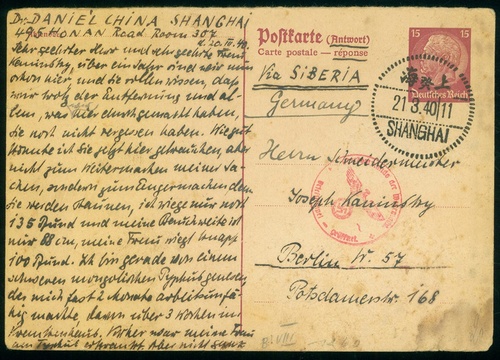 Dr. DANIEL CHINA SHANGHAI
495 HONAN Road Room 307
d. 20. III. 40.
Sehr geehrter Herr und sehr geehrte Frau
Kaminsky, über ein Jahr sind wir nun
schon hier und Sie sollen wissen, daß
wir trotz der Entfernung und al-
lem, was hier durchgemacht haben,
Sie nicht vergessen haben. Wie gut
könnte ich Sie jetzt hier gebrauchen, aber
nicht zum Weitermachen meiner Sa-
chen, sondern zum Engermachen, denn
Sie werden staunen, ich wiege nur noch
135 Pfund und meine Bauchweite ist
nur 88 cm, meine Frau wiegt knapp
100 Pfund. Ich bin gerade von einem
schweren mongolischen Typhus genesen,
der mich fast 2 Monate arbeitsunfä-
hig machte, davon über 3 Wochen im
Krankenhaus. Vorher war meine Frau
an Typhus erkrankt, aber nicht ganz
Postkarte (Antwort)
Carte postale — réponse
Via SIBERIA
Germany
15 15
Deutsches Reich
海 上
21.3.40 11
SHANGHAI
Herrn Schneidermeister
Joseph Kaminsky
Geprüft
Berlin W. 57
Potsdamerstr. 168